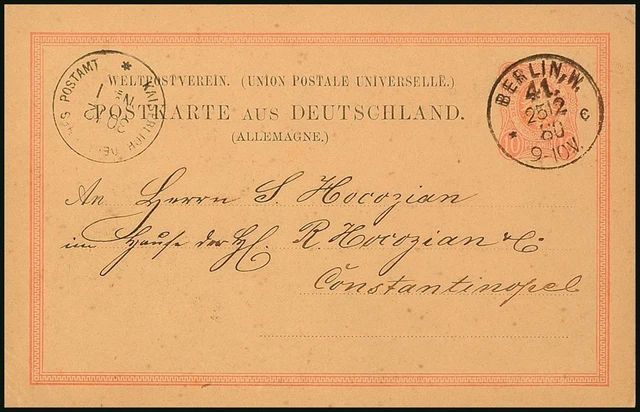 WELTPOSTVEREIN. (UNION POSTALE UNIVERSELLE.)
POSTKARTE AUS DEUTSCHLAND.
(ALLEMAGNE.)
KAISERLICH POSTAMT
*
BERLIN, W.
41.
25/2
80
9-10V.
* c
10
An Herrn S. Hocozian
im Hause der H. R. Hocozian & C.
Constantinopel